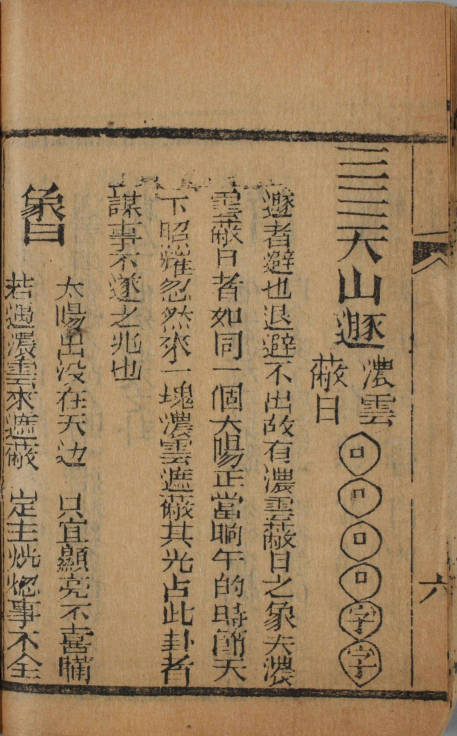 天山遯
濃雲
蔽日
口口口口字字
遯者避也退避不出故有濃雲蔽日之象夫濃
雲蔽日者如同一個太陽正當晌午的時節天
下照耀忽然來一塊濃雲遮蔽其光占此卦者
謀事不遂之兆也
象曰
太陽出没在天边 只宜顯亮不喜瞞
若遇濃雲來遮蔽 定主恍惚事不全
六